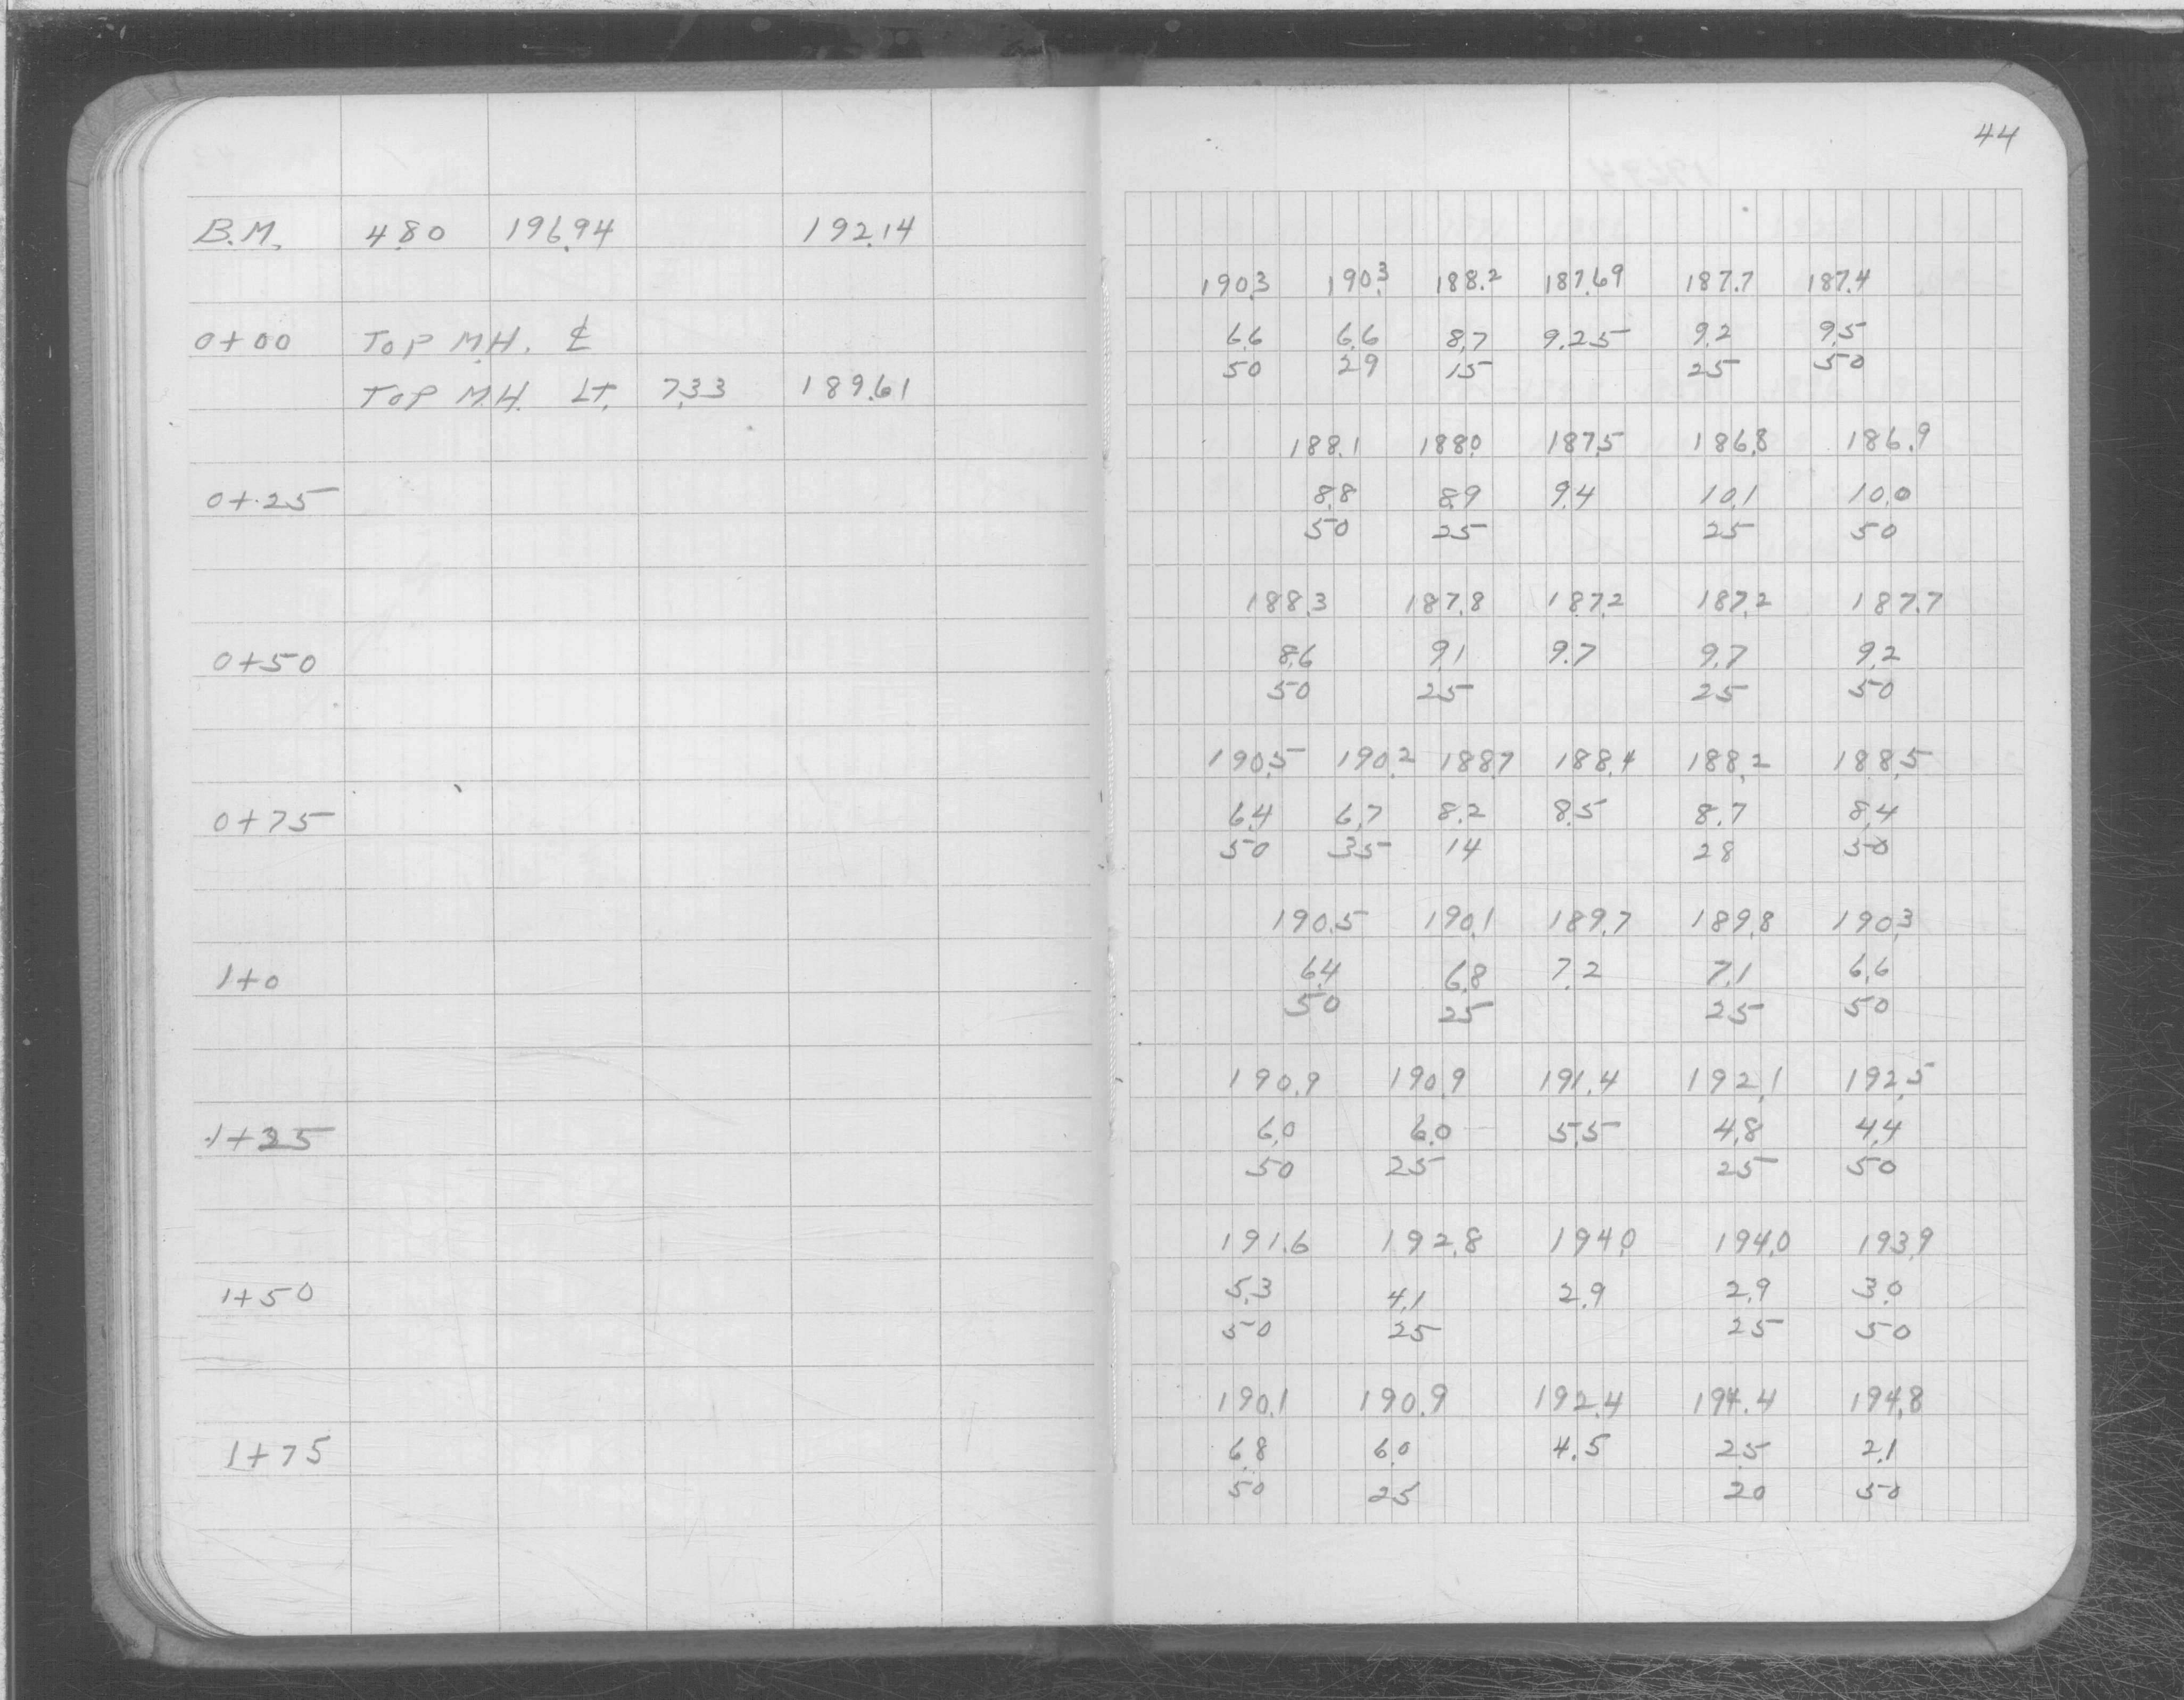 44
B.M. 4.80 196.94 192.14
190.3 190.3 188.2 187.69 187.7 187.4
0+00 TOP M.H. ℄ 6.6 6.6 8.7 9.25 9.2 9.5
50 29 15 25 50
TOP M.H. LT. 7.33 189.61
188.1 188.0 187.5 186.8 186.9
0+25 8.8 8.9 9.4 10.1 10.0
50 25 25 50
188.3 187.8 187.2 187.2 187.7
0+50 8.6 9.1 9.7 9.7 9.2
50 25 25 50
190.5 190.2 188.7 188.4 188.2 188.5
0+75 6.4 6.7 8.2 8.5 8.7 8.4
50 35 14 28 50
190.5 190.1 189.7 189.8 190.3
1+0 6.4 6.8 7.2 7.1 6.6
50 25 25 50
190.9 190.9 191.4 192.1 192.5
1+25 6.0 6.0 5.5 4.8 4.4
50 25 25 50
191.6 192.8 194.0 194.0 193.9
1+50 5.3 4.1 2.9 2.9 3.0
50 25 25 50
190.1 190.9 192.4 194.4 194.8
1+75 6.8 6.0 4.5 2.5 2.1
50 25 20 50